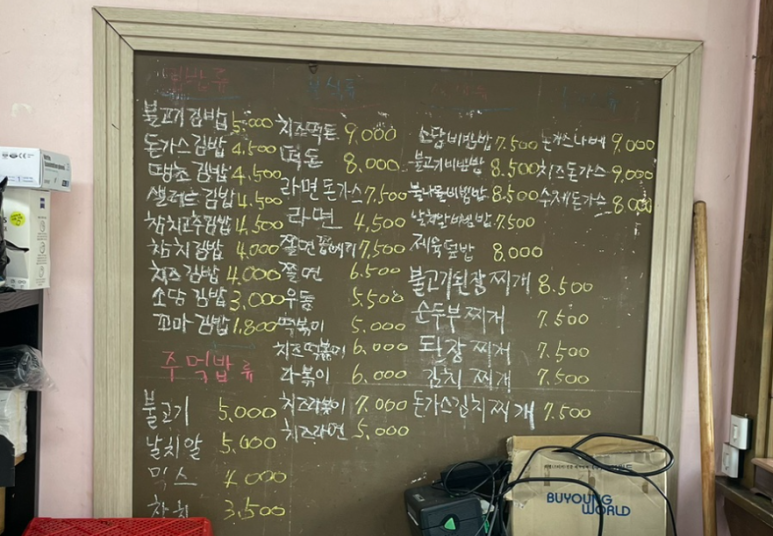 김밥류
불고기김밥 5,000
돈가스김밥 4,500
땡초김밥 4,500
샐러드김밥 4,500
참치고추김밥 4,500
참치김밥 4,000
치즈김밥 4,000
소담김밥 3,000
꼬마김밥 1,800
주먹밥류
불고기 5,000
날치알 5,000
믹스 4,000
참치 3,500
분식류
치즈떡돈 9,000
떡돈 8,000
라면돈가스 7,500
라면 4,500
7,500
쫄면 6,500
우동 5,500
떡볶이 5,000
치즈떡볶이 6,000
라볶이 6,000
치즈라볶이 7,000
치즈라면 5,000
소담비빔밥 7,500
불고기비빔밥 8,500
8,500
날치알비빔밥 7,500
제육덮밥 8,000
불고기된장찌개 8,500
순두부찌개 7,500
된장찌개 7,500
김치찌개 7,500
돈가스김치찌개 7,500
돈가스나베 9,000
치즈돈가스 9,000
수제돈가스 8,000
BUYOUNG
WORLD